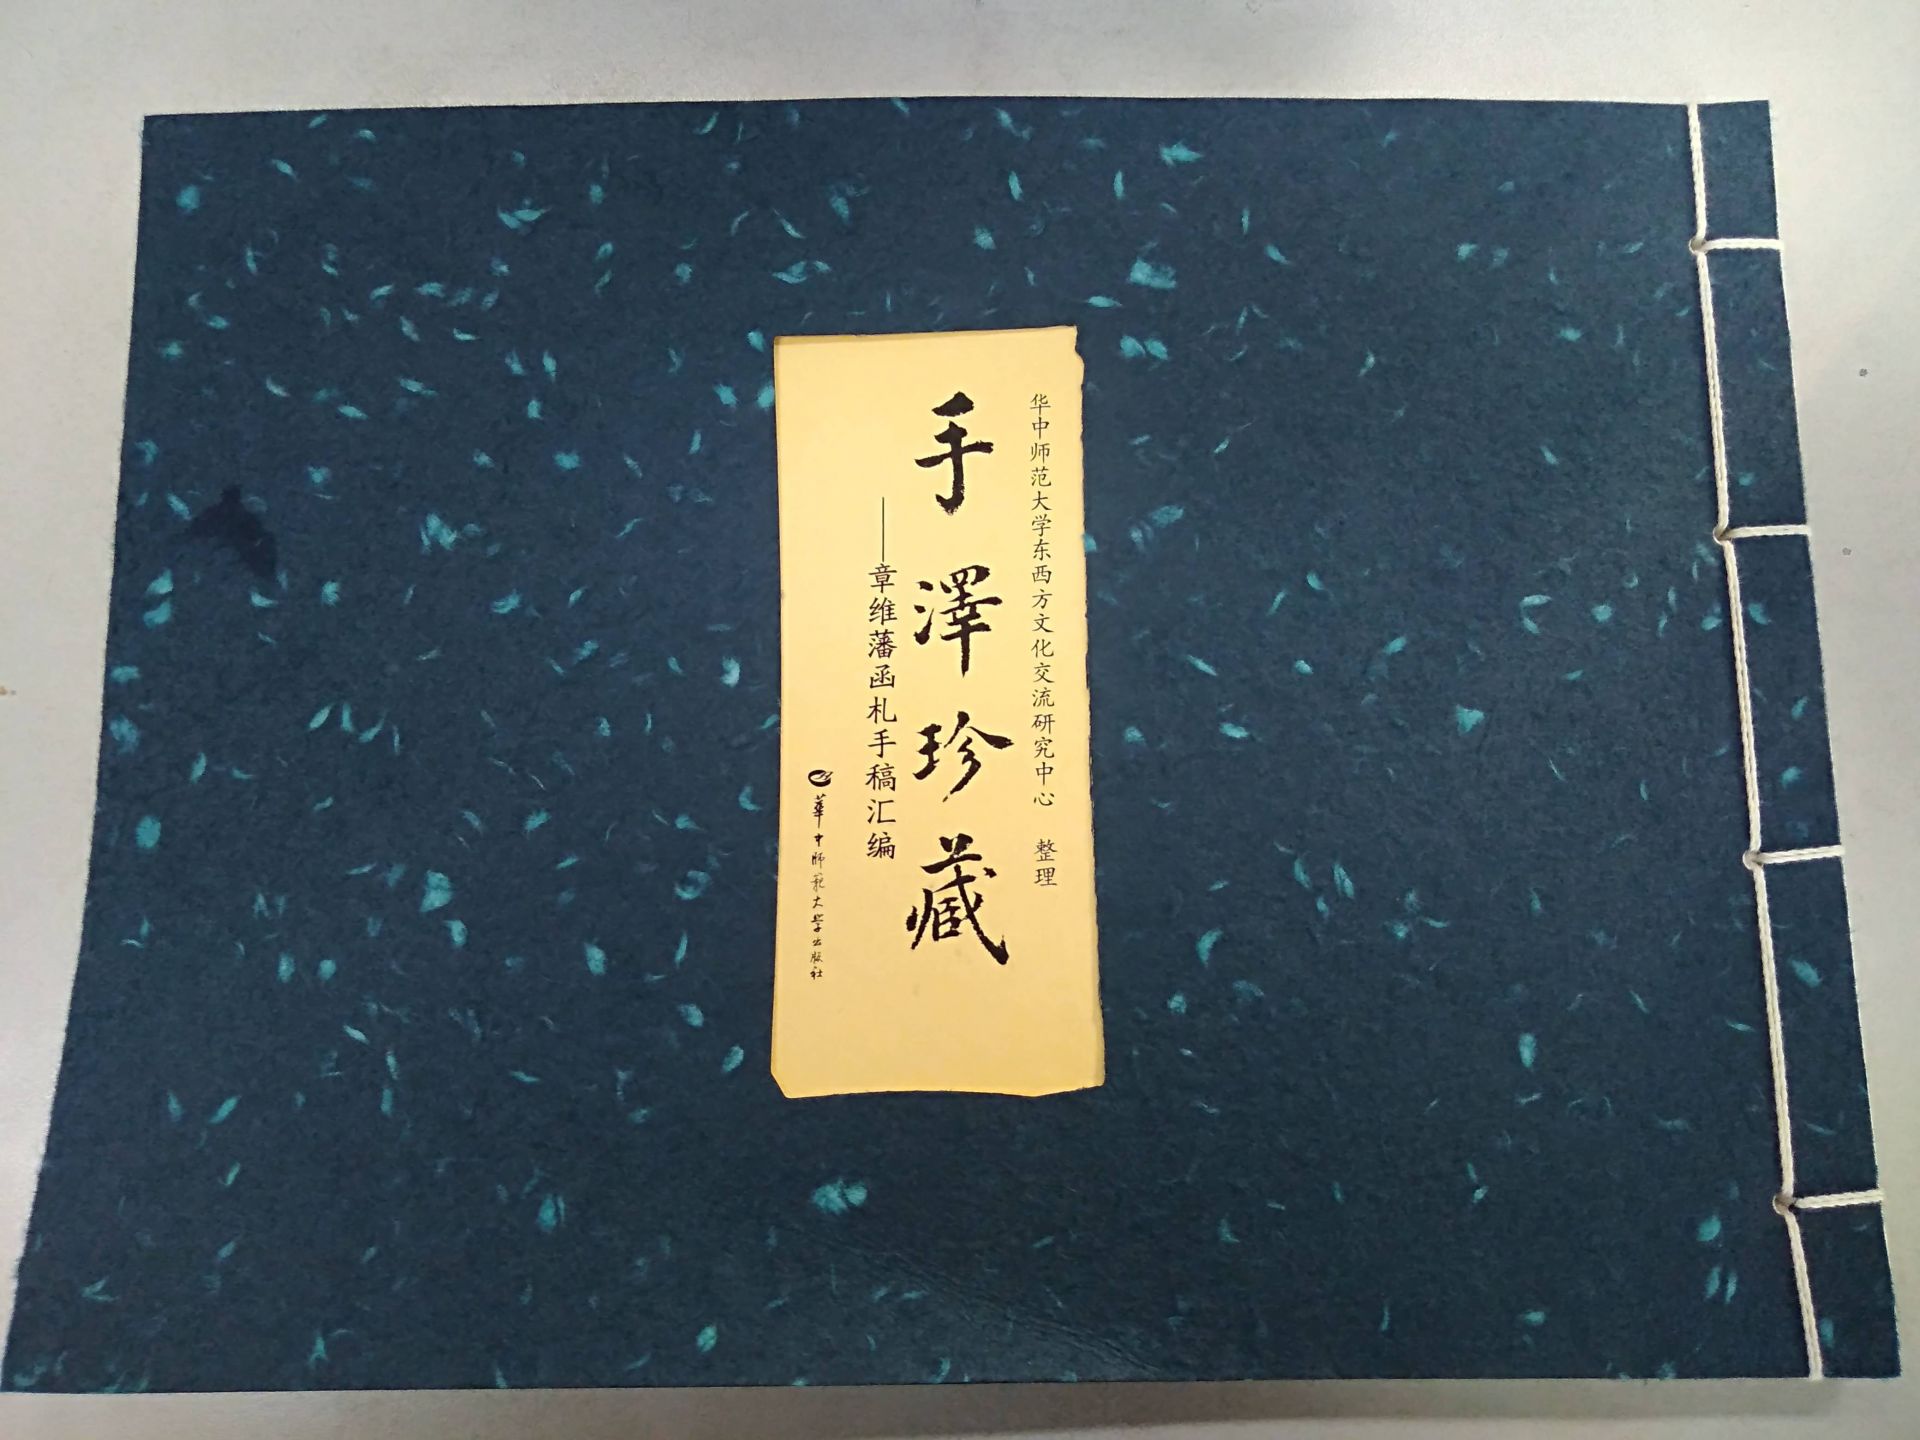 华中师范大学东西方文化交流研究中心 整理
手澤珍藏
——章维藩函札手稿汇编
華中师範大學出版社